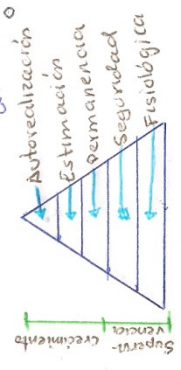 Autorealización
Estimación
permanencia
Seguridad
Fisiológica
Crecimiento
Supervi-
vencia